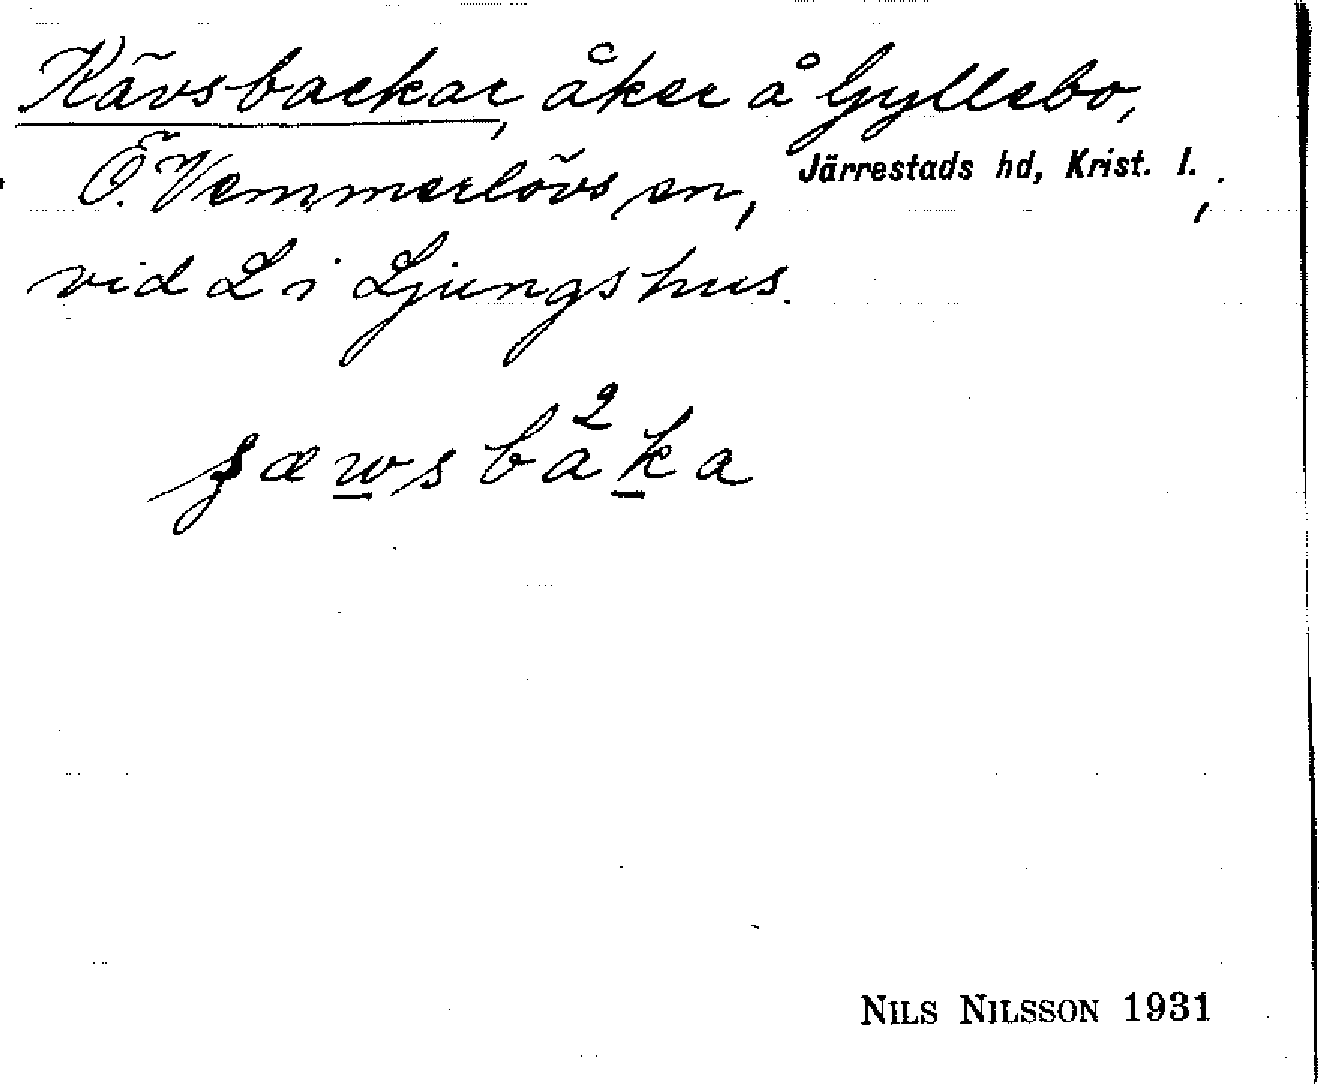 Kävsbackar, åker å Gyllebo,
Ö. Vemmerlövs sn, Järrestads hd, Krist. l.,
vid L i Ljungshus.
NILS NILSSON 1931